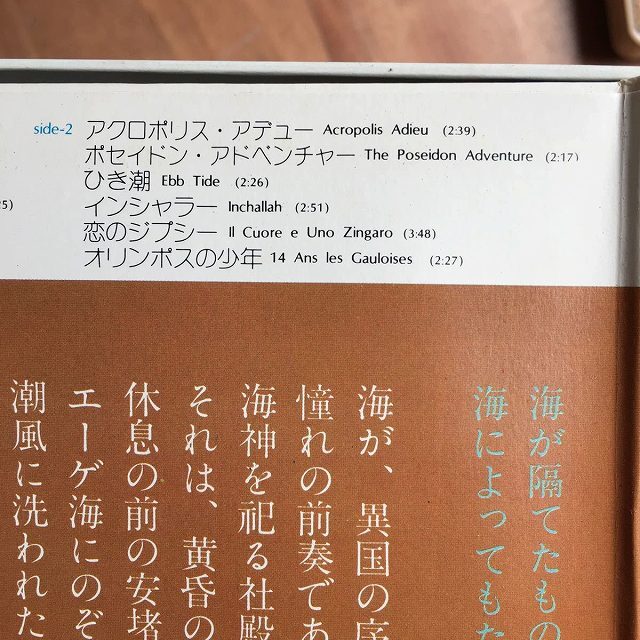 side-2 アクロポリス・アデュー Acropolis Adieu (2:39)
ポセイドン・アドベンチャー The Poseidon Adventure (2:17)
ひき潮 Ebb Tide (2:26)
インシャラー Inchallah (2:51)
恋のジプシー Il Cuore e Uno Zingaro (3:48)
オリンポスの少年 14 Ans les Gauloises (2:27)
5)
海が隔てたもの
海によってもた
海が、異国の序
憧れの前奏であ
海神を祀る社殿
それは、黄昏の
休息の前の安堵
エーゲ海にのぞ
潮風に洗われた